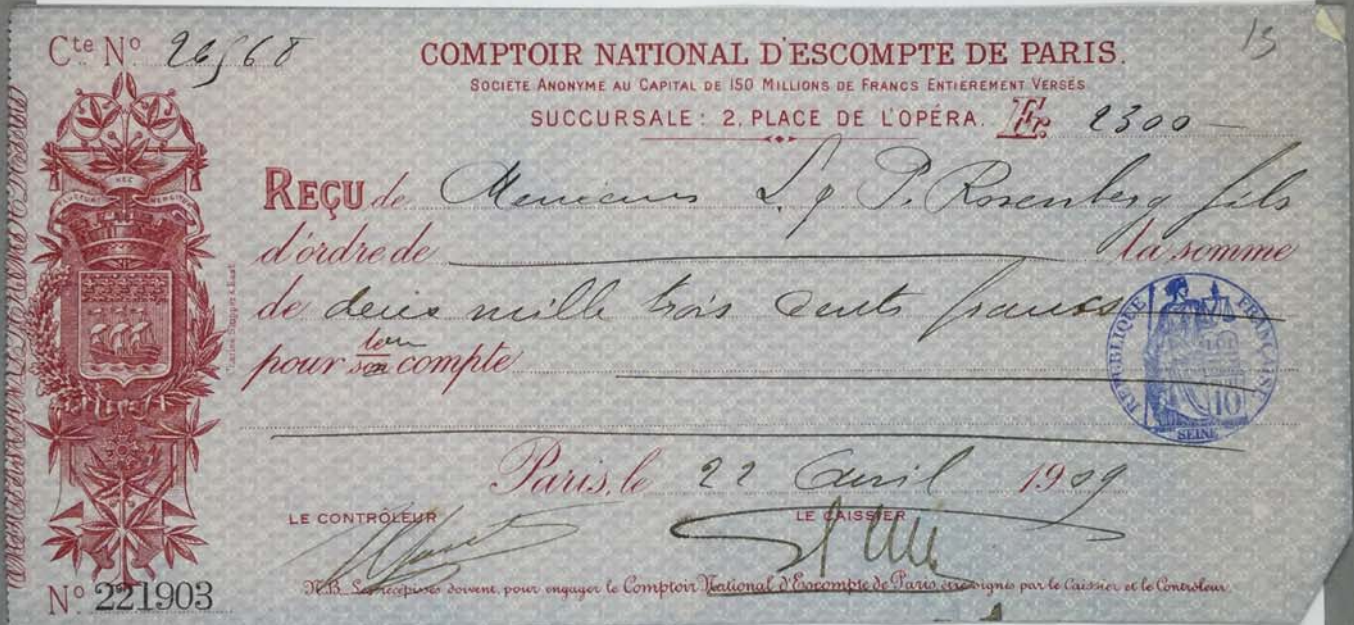 Cte No 26568
13
COMPTOIR NATIONAL D'ESCOMPTE DE PARIS.
SOCIÉTÉ ANONYME AU CAPITAL DE 150 MILLIONS DE FRANCS ENTIÈREMENT VERSÉS
SUCCURSALE : 2, PLACE DE L'OPÉRA. Fr. 2300 —
REÇU de Messieurs L. & P. Rosenberg fils
d'ordre de la somme
de deux mille trois cents francs
leur
pour son compte
RÉPUBLIQUE FRANÇAISE
10
SEINE
Paris, le 22 Avril 1909
LE CONTRÔLEUR LE CAISSIER
No 221903
N.B. Les récépissés doivent, pour engager le Comptoir National d'Escompte de Paris, être signés par le Caissier et le Contrôleur.